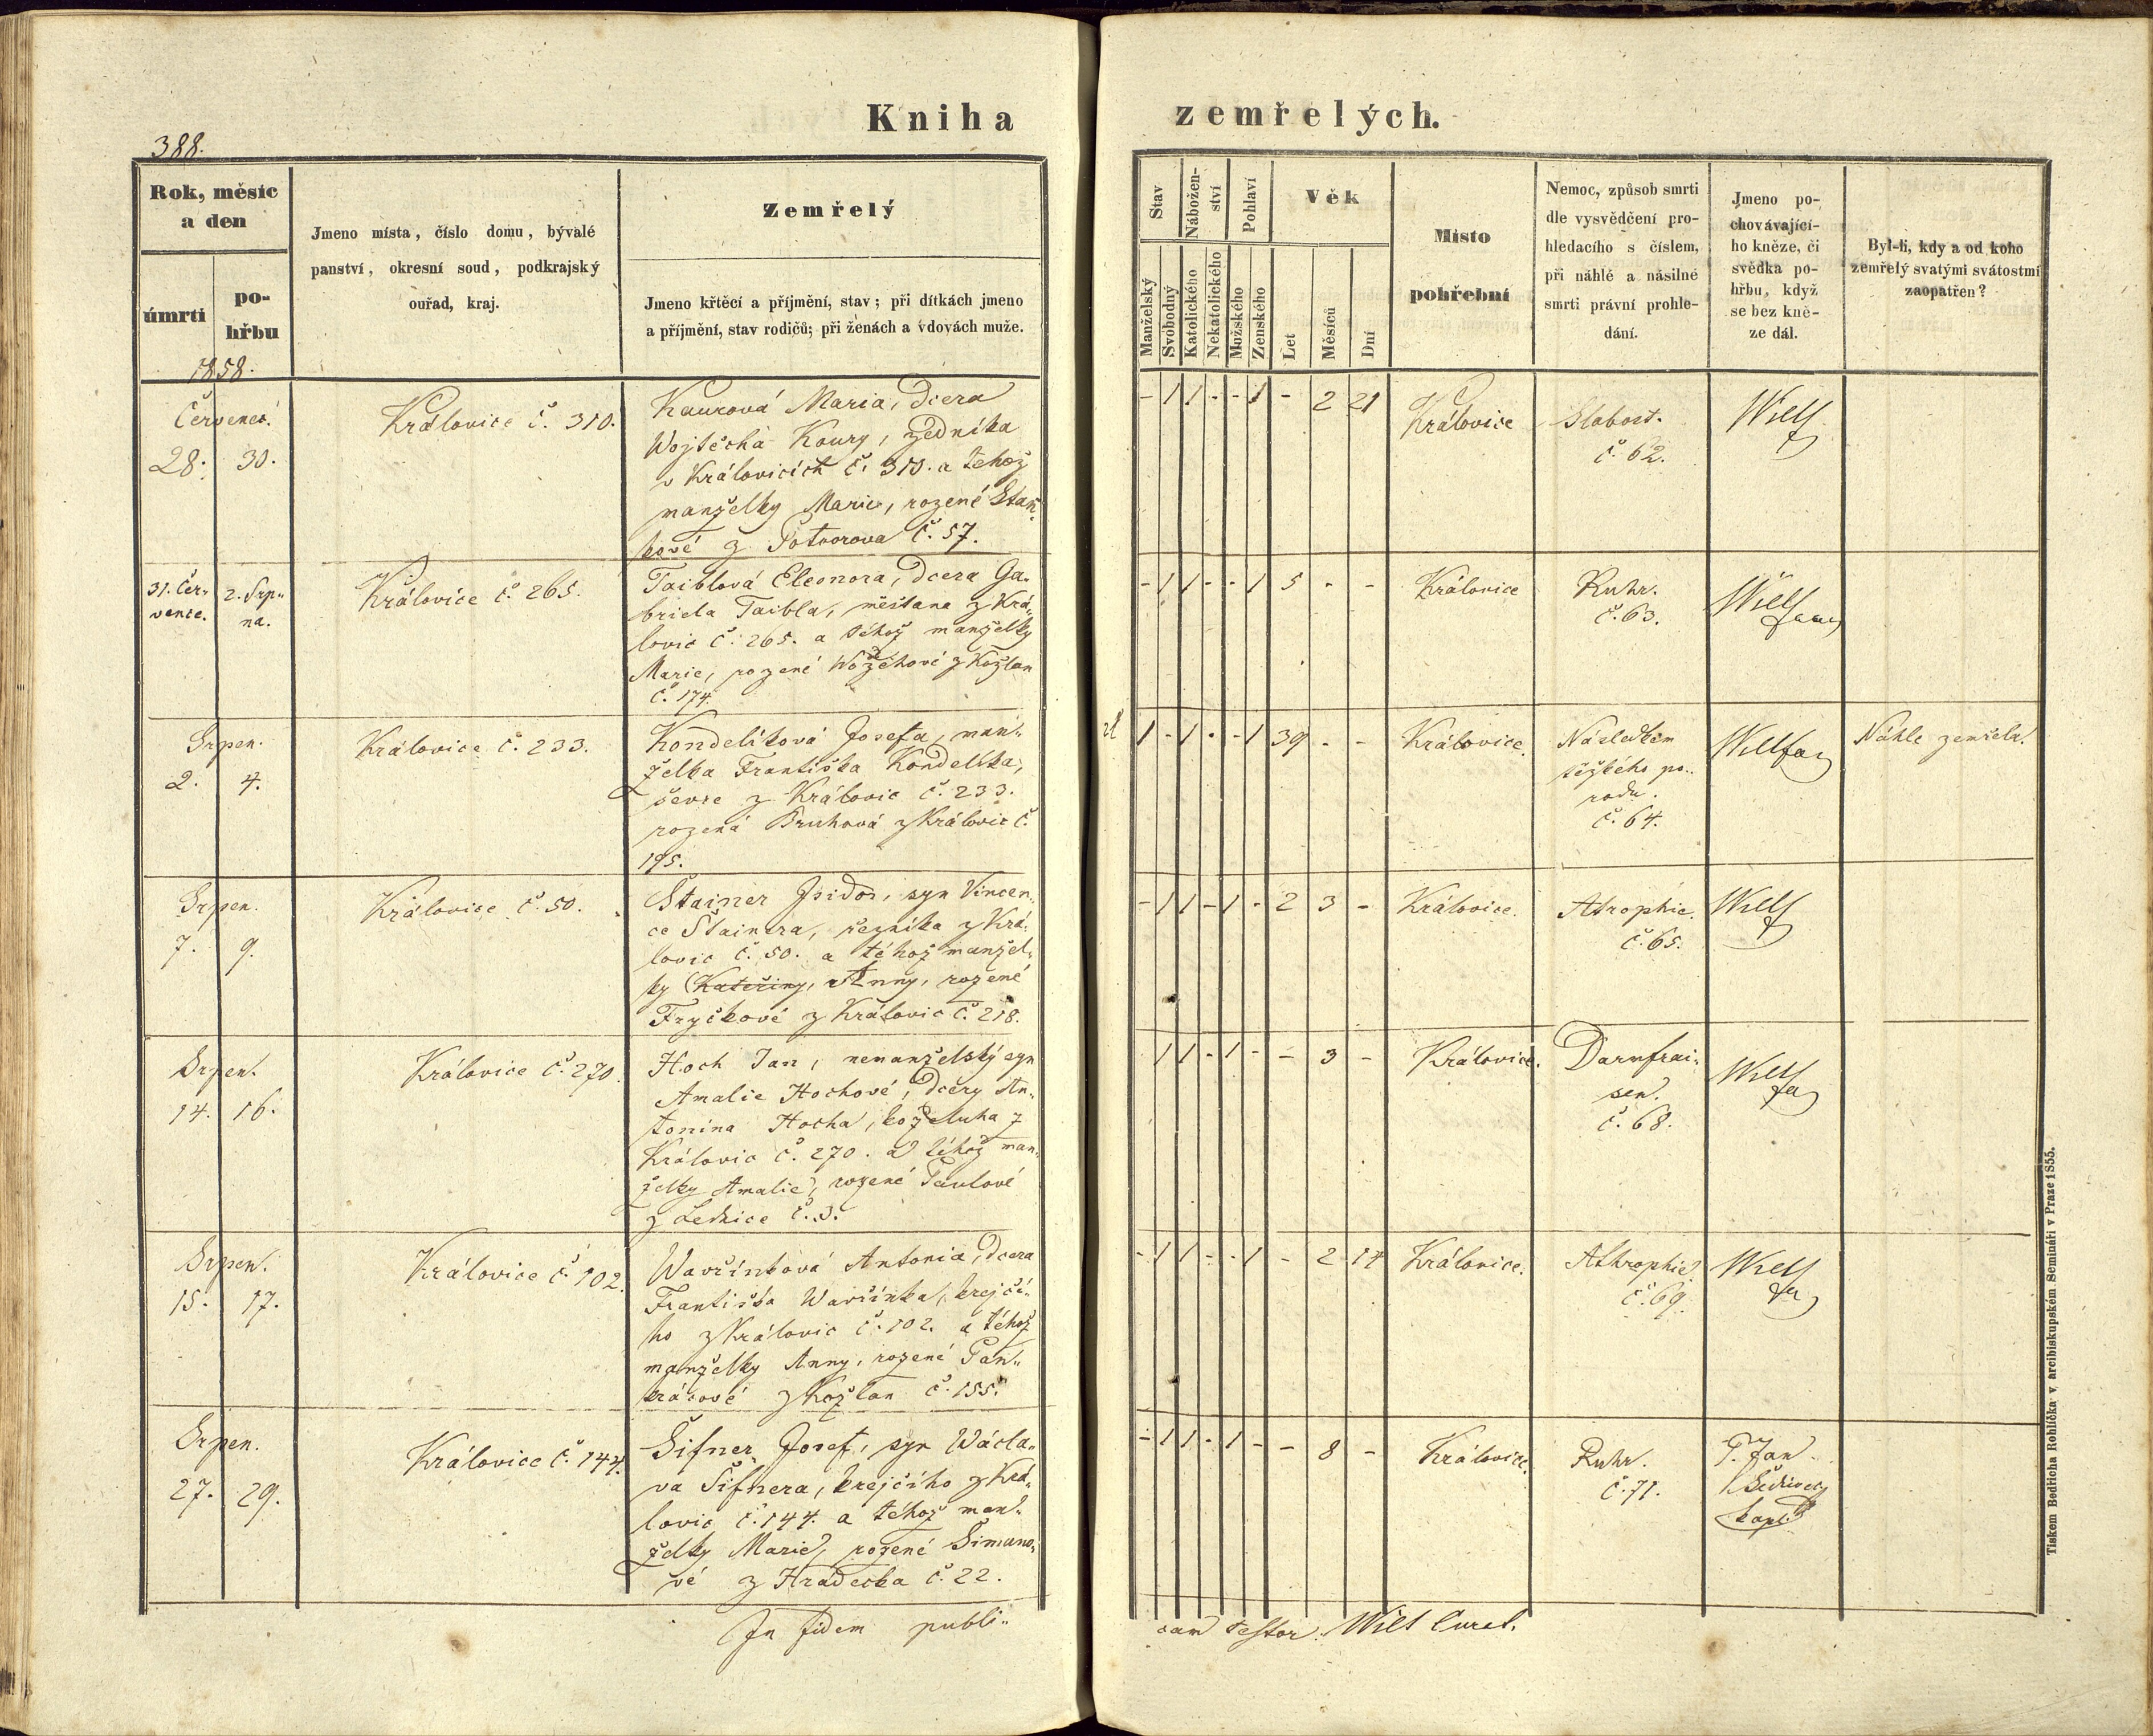 Kniha
zemřelých.
388.
Rok, měsíc
a den
úmrtí
po-
hřbu
1858.
Jmeno místa, číslo domu, bývalé
panství, okresní soud, podkrajský
ouřad, kraj.
Zemřelý
Jmeno křtěcí a příjmění, stav; při dítkách jmeno
a příjmění, stav rodičů; při ženách a vdovách muže.
Stav
Nábožen-
ství
Pohlaví
Věk
Manželský
Svobodný
Katolického
Nekatolického
Mužského
Ženského
Let
Měsíců
Dní
Místo
pohřební
Nemoc, způsob smrti
dle vysvědčení pro-
hledacího s číslem,
při náhlé a násilné
smrti právní prohle-
dání.
Jmeno po-
chovávající-
ho kněze, či
svědka po-
hřbu, když
se bez kně-
ze dál.
Byl-li, kdy a od koho
zemřelý svatými svátostmi
zaopatřen?
Červenec.
28. 30.
Královice č. 310.
Kaurová Maria, dcera
Wojtěcha Koury, zedníka
v Královicích č. 310. a téhož
manželky Marie, rozené Staň-
kové z Potvorova č. 57.
- 1 1 - - 1 - 2 21
Královice
Slabost.
č. 62.
Wilt
31. Čer-
vence.
2. Srp-
na.
Královice č. 265.
Taiblová Eleonora, dcera Ga-
briela Taibla, měštana z Krá-
lovic č. 265. a téhož manželky
Marie, rozené z Kožlan
č. 174.
- 1 1 - - 1 5 - -
Královice
Ruhr.
č. 63.
Wilt
Srpen.
2. 4.
Královice č. 233.
Kondelíková Josefa, man-
želka Františka Kondelíka,
ševce z Královic č. 233.
rozená Bruhová z Královic č.
195.
1 - 1 - - 1 39 - -
Královice.
Následkem
těžkého po-
rodu.
č. 64.
Wilt
Náhle zemřela.
Srpen.
7. 9.
Královice č. 50.
Štainer Isidor, syn Vincen-
ce Štainera, řezníka z Krá-
lovic č. 50. a téhož manžel-
ky Kateřiny, Anny, rozené
Fryčkové z Královic č. 218.
- 1 1 - 1 - 2 3 -
Královice.
Atrophie.
č. 65.
Wilt
Srpen.
14. 16.
Královice č. 270.
Hoch Jan, nemanželský syn
Amalie Hochové, dcery An-
tonína Hocha, koželuha z
Královic č. 270. a téhož man-
želky Amalie, rozené Paulové
z Lednice č. 3.
1 1 - 1 - - 3 -
Královice.
Darmfrai-
sen.
č. 68.
Wilt
Srpen.
15. 17.
Královice č. 102.
Wavřínková Antonia, dcera
Františka Wavřínka, krejčí-
ho z Královic č. 102. a téhož
manželky Anny, rozené Pan-
krácové z Kožlan č. 155.
- 1 1 - - 1 - 2 14
Královice.
Athrophie.
č. 69.
Wilt
Srpen.
27. 29.
Královice č. 144.
Šifner Josef, syn Wácla-
va Šifnera, krejčího z Krá-
lovic č. 144. a téhož man-
želky Marie, rozené Šimano-
vé z Hradecka č. 22.
- 1 1 - 1 - - 8 -
Královice.
Ruhr.
č. 71.
P. Jan
kapl.
In fidem publi-
cam testor: Wilt Curat.
Tiskem Bedřicha Rohlíčka v arcibiskupském Semináři v Praze 1855.